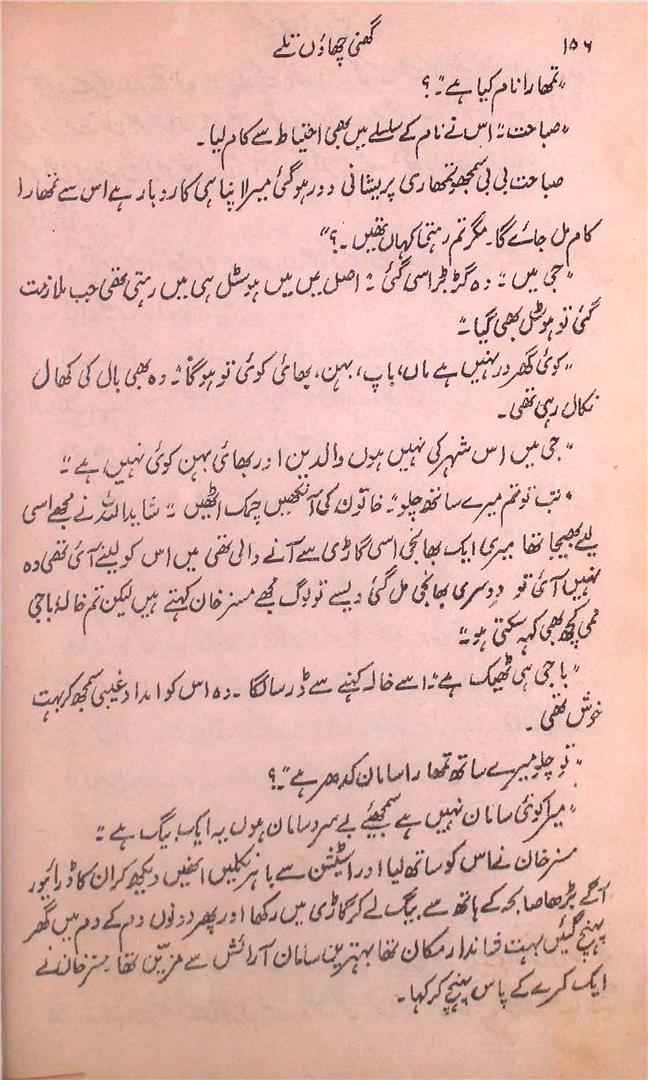 ۱۵۶
گھنی چھاؤں تلے
”تمھارا نام کیا ہے“۔؟
”صباحت“۔ اس نے نام کے سلسلے میں بھی احتیاط سے کام لیا۔
صباحت بی بی سمجھو تمھاری پریشانی دور ہو گئی میرا اپنا ہی کاروبار ہے اس سے تمھارا
کام مل جائے گا۔ مگر تم رہتی کہاں تھیں۔؟“
”جی میں“۔ وہ گڑبڑا سی گئی ”اصل میں میں ہوسٹل ہی میں رہتی تھی جب ملازمت
گئی تو ہوسٹل بھی گیا“۔
”کوئی گھر در نہیں ہے ماں، باپ، بہن، بھائی کوئی تو ہو گا“۔ وہ بھی بال کی کھال
نکال رہی تھی۔
”جی میں اس شہر کی نہیں ہوں والدین اور بھائی بہن کوئی نہیں ہے“۔
”تب تو تم میرے ساتھ چلو“۔ خاتون کی آنکھیں چمک اٹھیں ”شاید اللہ نے مجھے اسی
لیے بھیجا تھا میری ایک بھانجی اسی گاڑی سے آنے والی تھی میں اس کو لینے آئی تھی وہ
نہیں آئی تو دوسری بھانجی مل گئی ویسے تو لوگ مجھے مسز خان کہتے ہیں لیکن تم خالہ باجی
ممی کچھ بھی کہہ سکتی ہو“۔
”باجی ہی ٹھیک ہے“۔ اسے خالہ کہنے سے ڈر سا لگا۔ وہ اس کو امداد غیبی سمجھ کر بہت
خوش تھی۔
”تو چلو میرے ساتھ تمھارا سامان کدھر ہے“۔؟
”میرا کوئی سامان نہیں ہے سمجھیئے بے سرو سامان ہوں یہ ایک بیگ ہے“۔
مسز خان نے اس کو ساتھ لیا اور اسٹیشن سے باہر نکلیں انھیں دیکھ کر ان کا ڈرائیور
آگے بڑھا صابحہ کے ہاتھ سے بیگ لے کر گاڑی میں رکھا اور پھر دونوں دم کے دم میں گھر
پہنچ گئیں بہت شاندار مکان تھا بہترین سامان آرائش سے مزیّن تھا مسز خان نے
ایک کمرے کے پاس پہنچ کر کہا۔